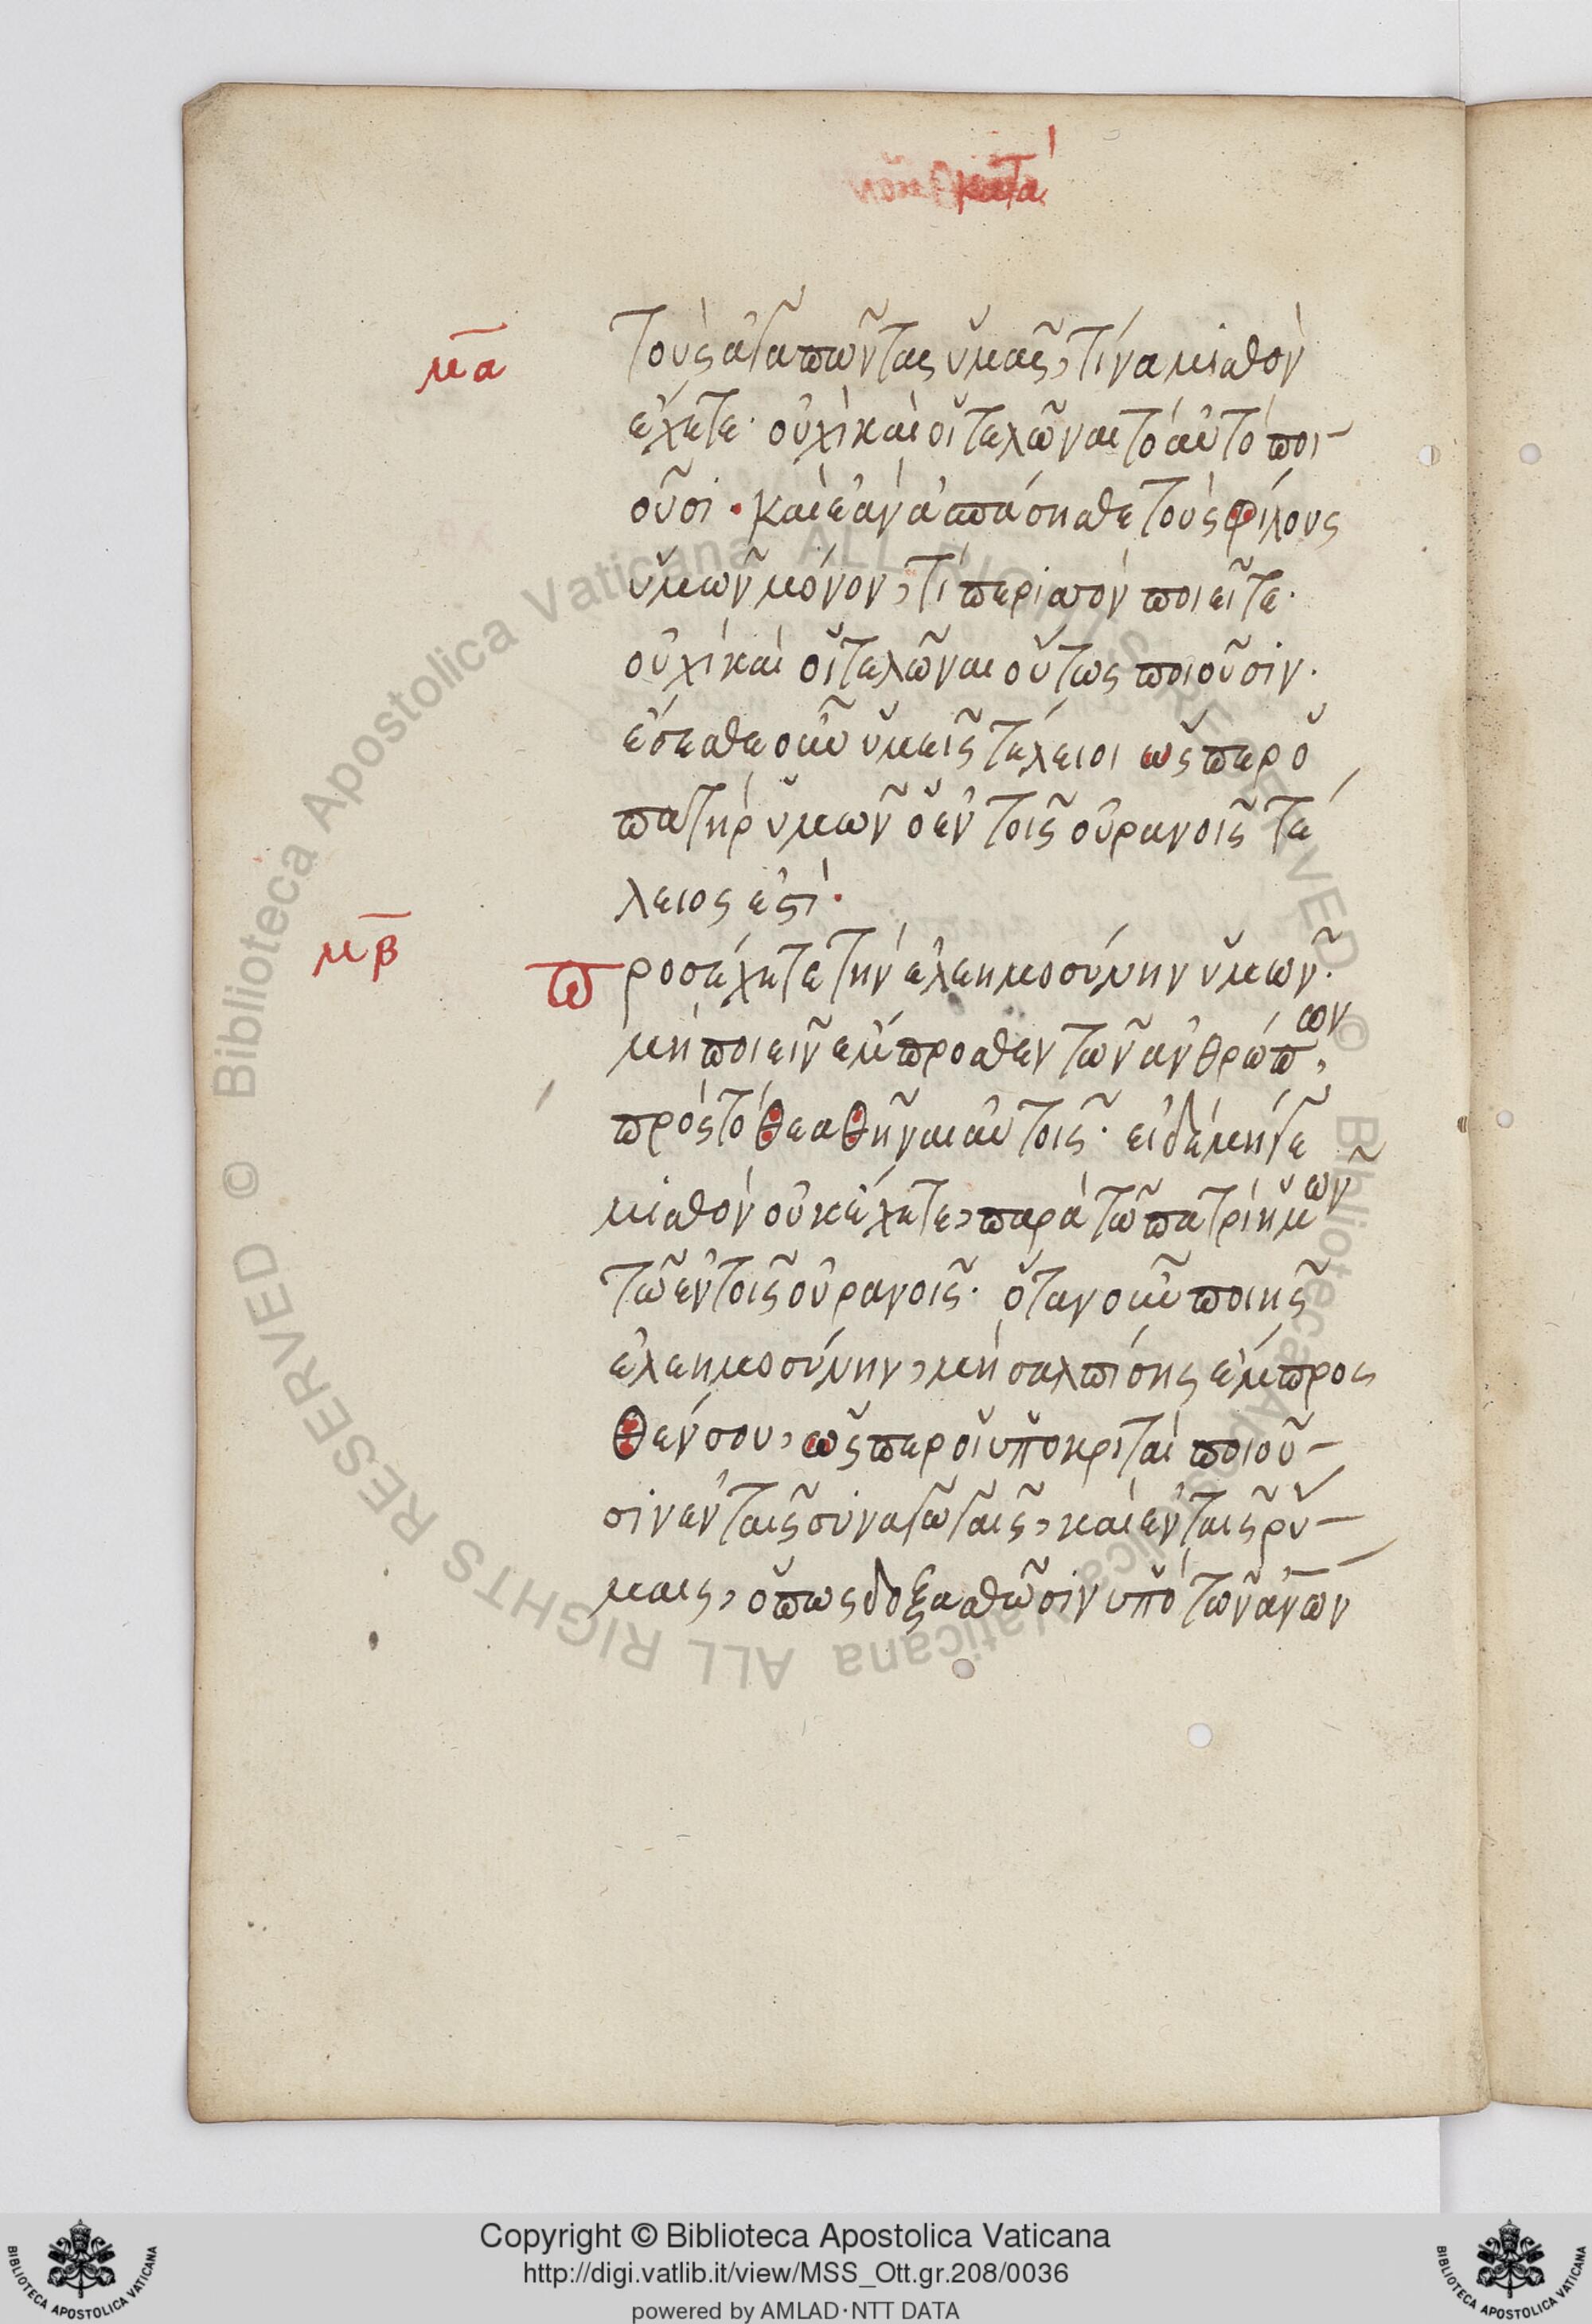 κατὰ
μα τοὺς ἀγαπῶντας ὑμᾶς, τίνα μισθὸν
ἔχετε· οὐχὶ καὶ οἱ τελῶναι τὸ αὐτὸ ποι-
οῦσι· καὶ ἐὰν ἀσπάσησθε τοὺς φίλους
ὑμῶν μόνον, τί περισσὸν ποιεῖτε·
οὐχὶ καὶ οἱ τελῶναι οὕτως ποιοῦσιν·
ἔσεσθε οὖν ὑμεῖς τέλειοι ὥσπερ ὁ
πατὴρ ὑμῶν ὁ ἐν τοῖς οὐρανοῖς τέ
λειος ἐστὶ·
μβ προσέχετε τὴν ἐλεημοσύνην ὑμῶν·
μὴ ποιεῖν ἔμπροσθεν τῶν ἀνθρώπων,
πρὸς τὸ θεαθῆναι αὐτοῖς· εἰ δὲ μήγε
μισθὸν οὐκ ἔχετε, παρὰ τῶ πατρὶ ἡμῶν
τῶ ἐν τοῖς οὐρανοῖς· ὅταν οὖν ποιῆς
ἐλεημοσύνην, μὴ σαλπίσης ἔμπροσ
θέν σου, ὥσπερ οἱ ὑποκριταὶ ποιοῦ-
σιν ἐν ταῖς συναγωγαῖς, καὶ ἐν ταῖς ρύ-
μαις, ὅπως δοξασθῶσιν ὑπὸ τῶν ἀνων
Copyright © Biblioteca Apostolica Vaticana
http://digi.vatlib.it/view/MSS_Ott.gr.208/0036
powered by AMLAD·NTT DATA
BIBLIOTECA APOSTOLICA VATICANA
BIBLIOTECA APOSTOLICA VATICANA
© Biblioteca Apostolica Vaticana ALL RIGHTS RESERVED © Biblioteca Apostolica Vaticana ALL RIGHTS RESERVED